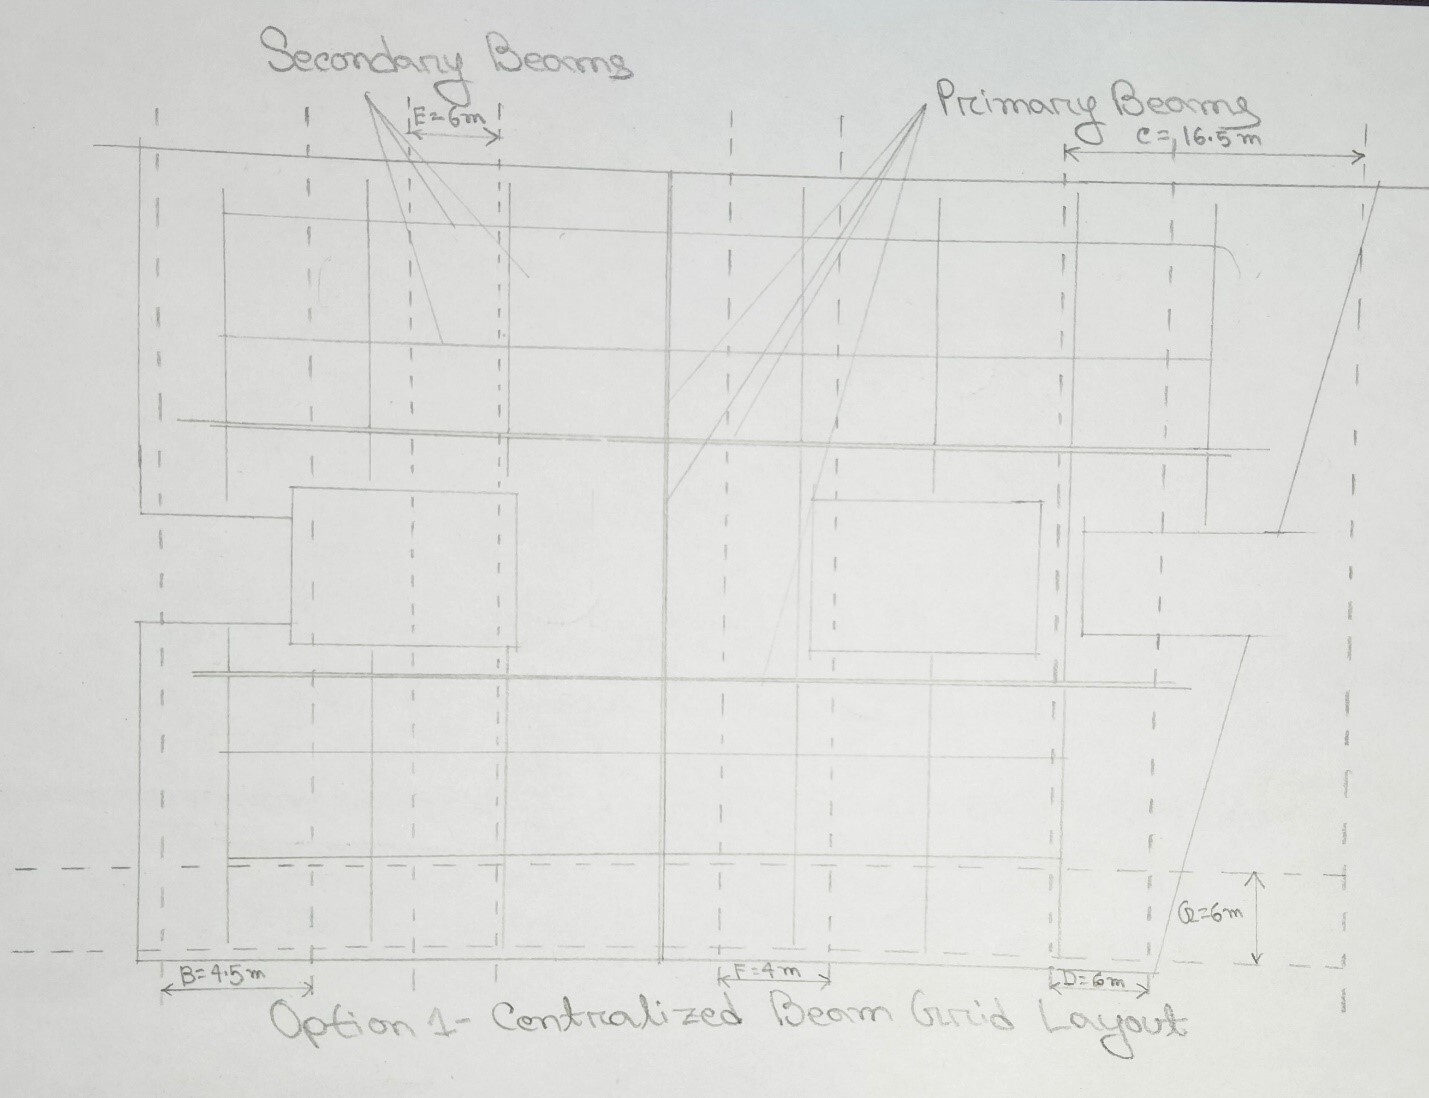 Secondary Beams
E=6m
Primary Beams
C=16.5m
G=6m
B=4.5m
F=4m
D=6m
Option 1- Centralized Beam Grid Layout